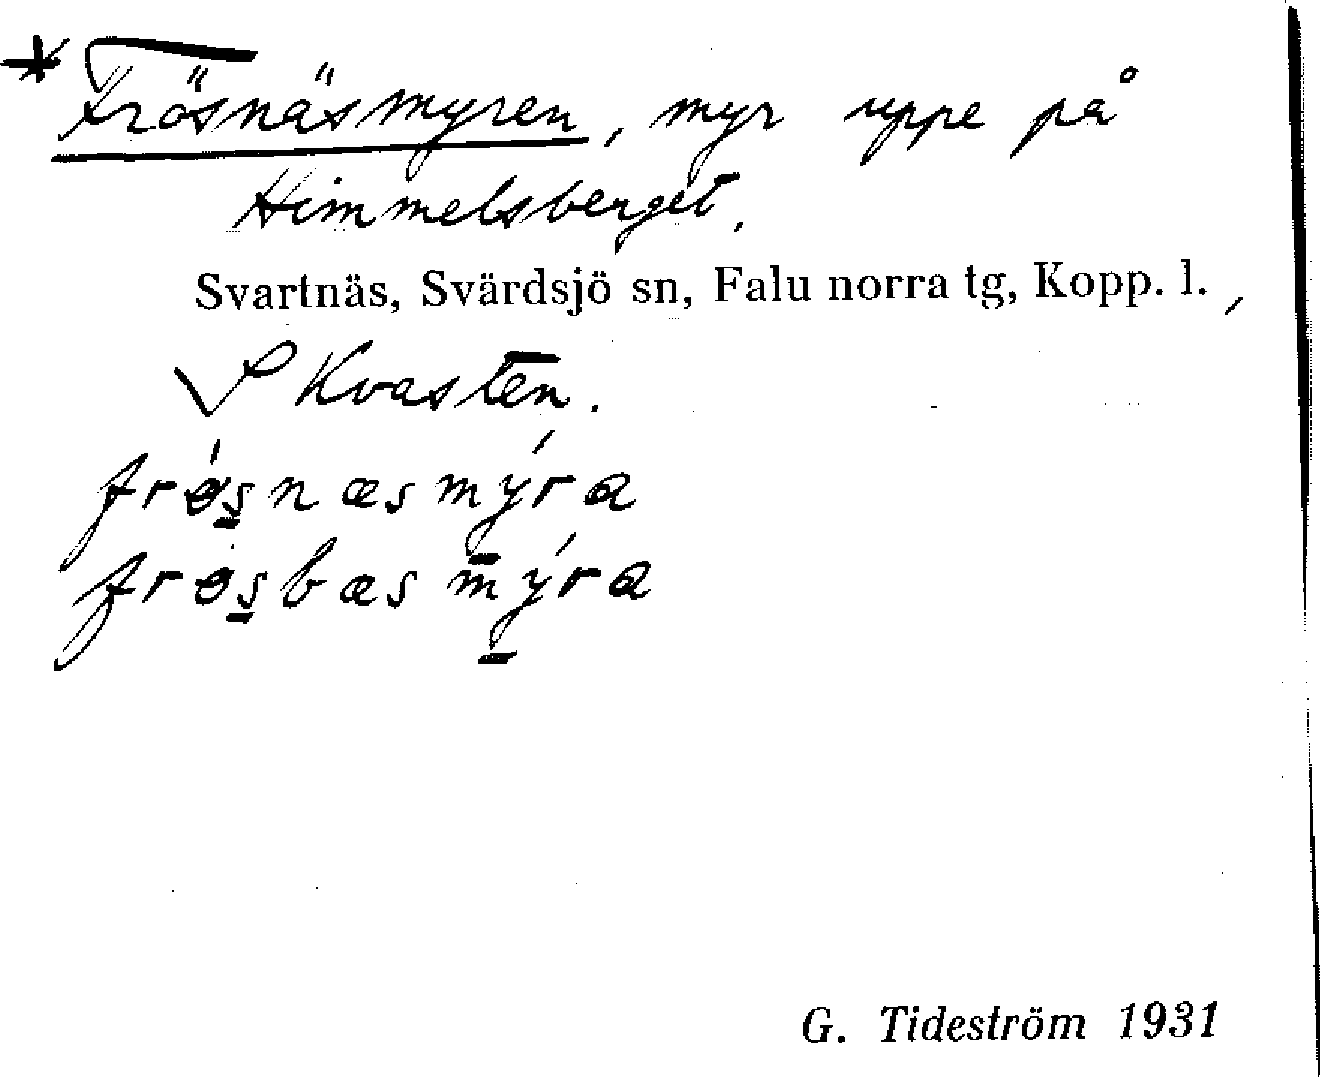 * Frösnäsmyren, myr uppe på
Himmelsberget.
Svartnäs, Svärdsjö sn, Falu norra tg, Kopp. l.,
S Kvasten.
frø̀s̲næsmýra
frøs̲bæs mýra
G. Tideström 1931